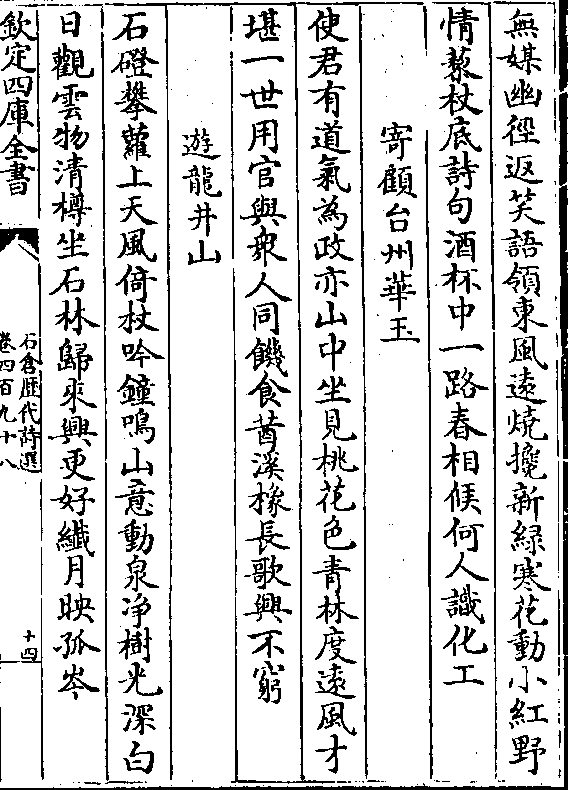 無媒幽徑返笑語領東風遠燒攙新緑寒花動小紅野
情藜杖底詩句酒杯中一路春相候何人識化工
寄顧台州華玉
使君有道氣為政亦山中坐見桃花色青林度遠風才
堪一世用官與衆人同饑食苕溪橡長歌興不窮
遊龍井山
石磴攀蘿上天風倚杖吟鐘鳴山意動泉净樹光深白
日觀雲物清樽坐石林歸來興更好纖月映孤岑
欽定四庫全書
石倉歴代詩選
卷四百九十八
十四